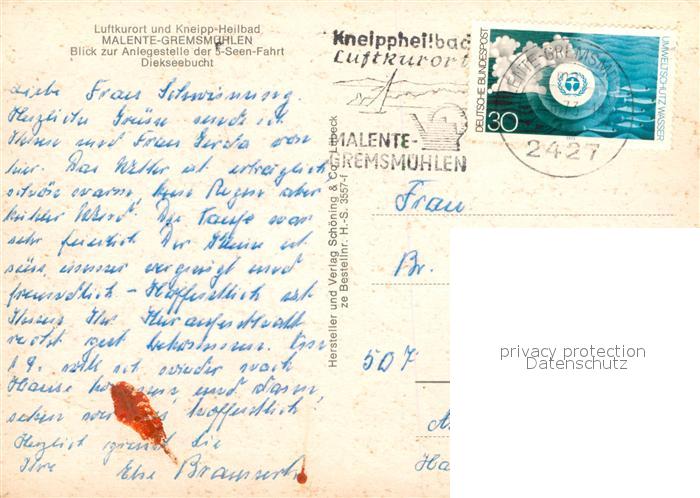 Luftkurort und Kneipp-Heilbad
MALENTE-GREMSMÜHLEN
Blick zur Anlegestelle der 5-Seen-Fahrt
Diekseebucht
Liebe Frau
Herzliche Grüße sende ich
Ihnen und Frau Gerda von
hier. Das Wetter ist erträglich
schön warm, kein Regen aber
kühler Wind. Die Taufe war
sehr feierlich. Der Kleine ist
süss, immer vergnügt und
freundlich - Hoffentlich ist
Ihnen Ihr Kuraufenthalt
recht gut bekommen. Am
1.9. will ich wieder nach
Hause kommen und dann
sehen wir uns hoffentlich
Herzlich grüsst Sie
Ihre Else
Hersteller und Verlag Schöning & Co., Lübeck
ze Bestellnr. H.-S. 3557-f
Kneippheilbad
Luftkurort
MALENTE-
GREMSMÜHLEN
DEUTSCHE BUNDESPOST
30
UMWELTSCHUTZ WASSER
MALENTE-GREMSM
77
2427
Frau
Br.
507
Ha
privacy protection
Datenschutz